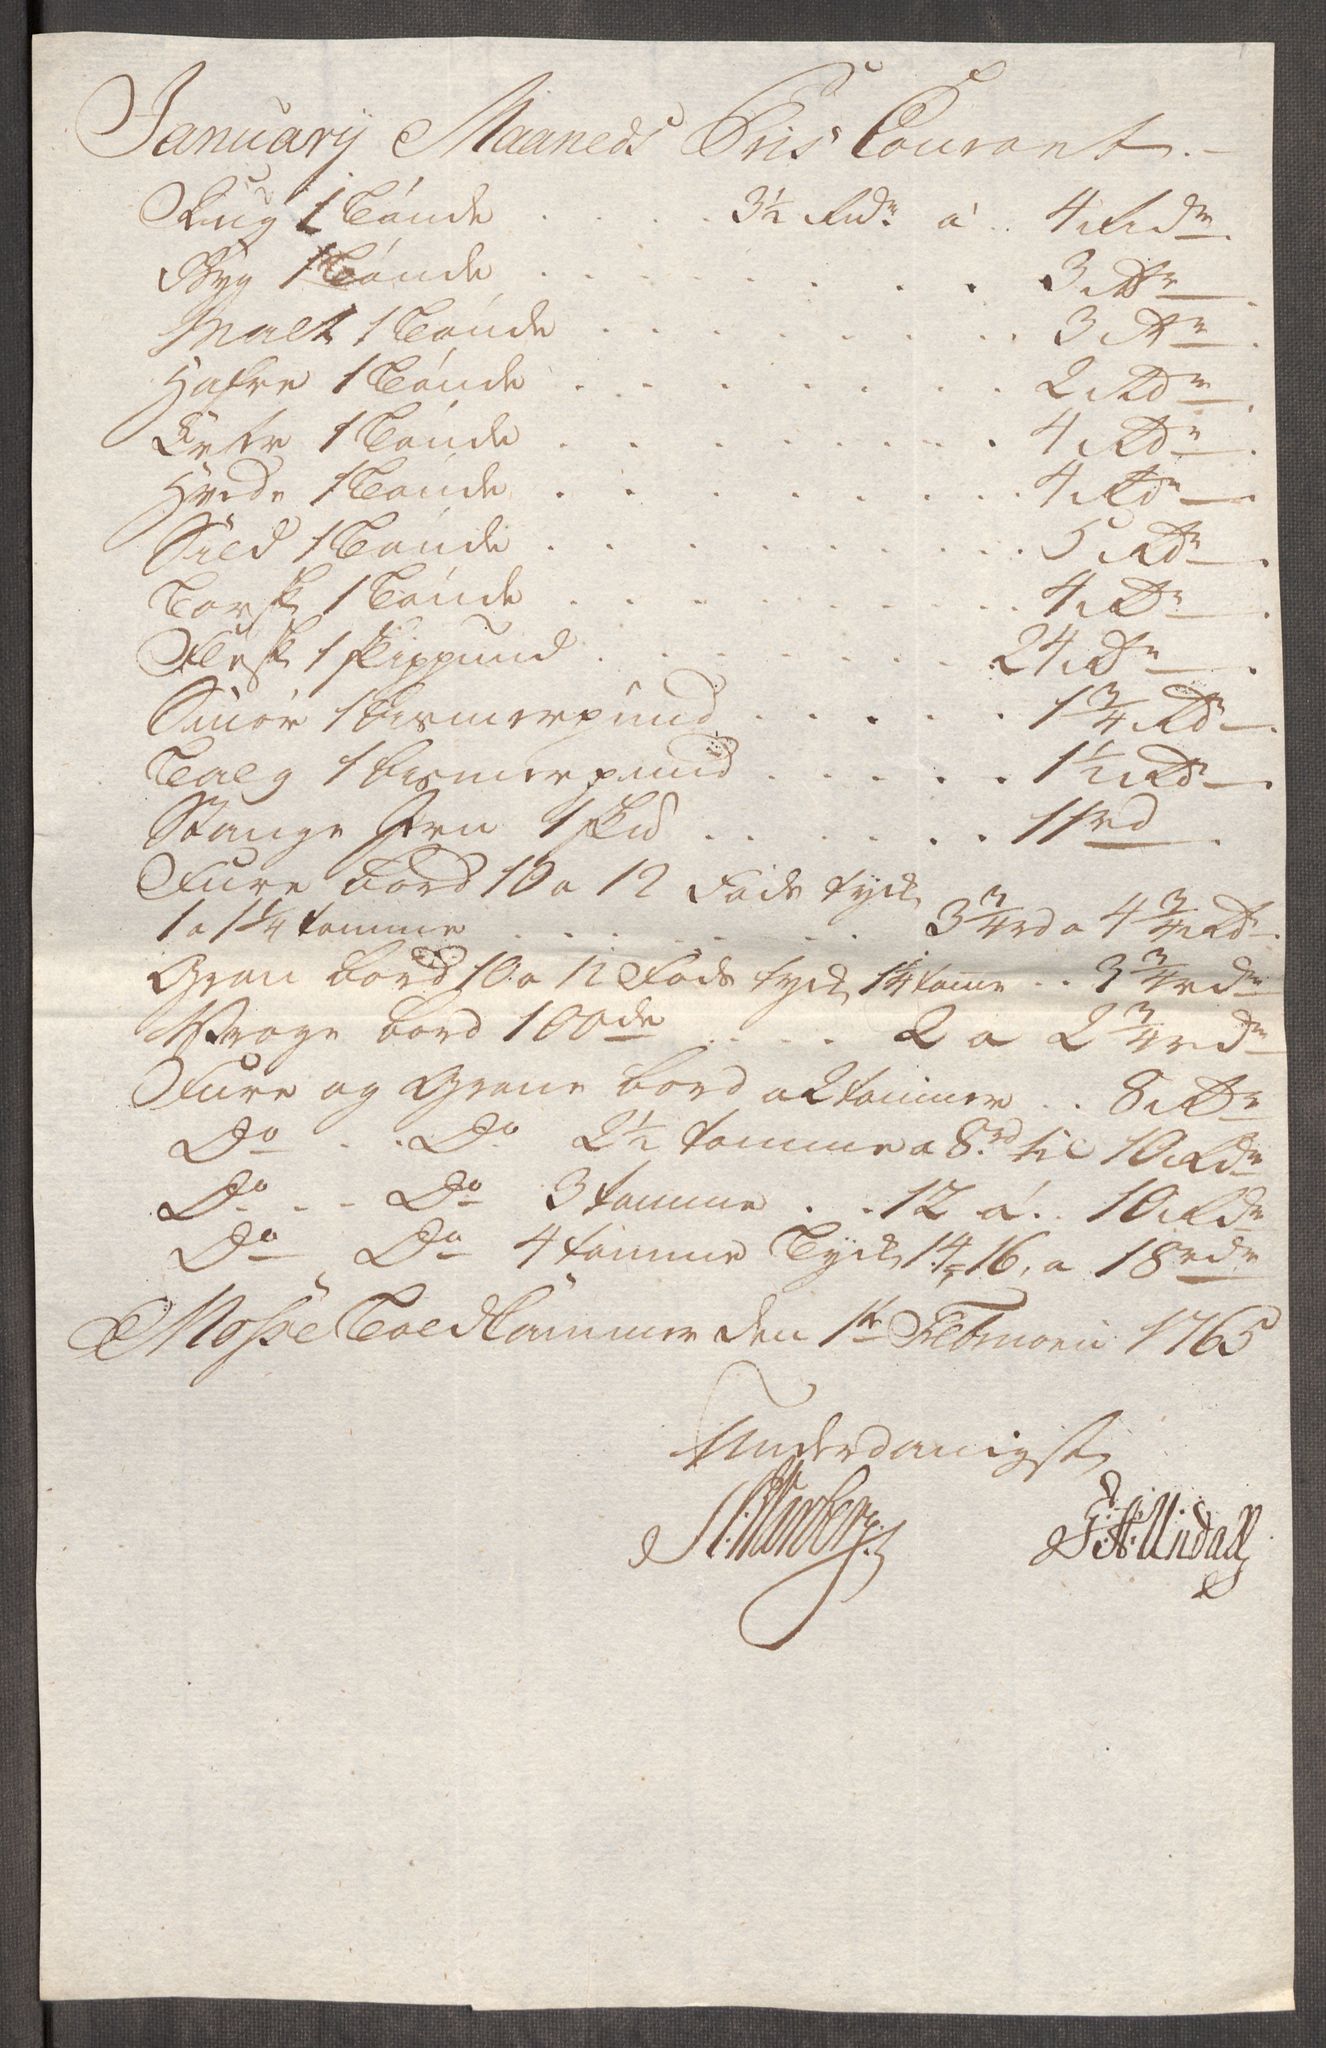 January Maaneds Pris Courant.
Rug 1 Tønde . . . . 3½ Rdr. a . . 4 Rdr.
Byg 1 Tønde . . . . . . . . 3 Rdr.
Malt 1 Tønde . . . . . . . . 3 Rdr.
Hafre 1 Tønde . . . . . . . . 2 Rdr.
Erter 1 Tønde . . . . . . . . 4 Rdr.
Hvede 1 Tønde . . . . . . . . 4 Rdr.
Sild 1 Tønde . . . . . . . . . 5 Rdr.
Torsk 1 Tønde . . . . . . . . . 4 Rdr.
Flesk 1 skippund . . . . . . . 24 Rdr.
Smør 1 bismerpund . . . . . 1¾ Rdr.
Talg 1 bismerpund . . . . . 1½ Rdr.
Stange Jern 1 skd . . . . . . . 11 rd.
Fure bord 10 a 12 Fods tyck
1 a 1¼ tomme . . . . . . . 3¾ rd a 4¾ Rdr.
Gran bord 10 a 12 Fods tyck 1¼ tome . . 3¾ rdr
Vrage bord 100de . . . . 2 a 2¾ rdr
Fure og Grane bord a 2 tommer . . 8 Rdr
Do . . Do 2½ tomme a 8 rd til 10 Rdr
Do . . Do 3 tomme . . 12 a . . 10 Rdr
Do Do 4 tomme Tyck 14, 16, a 18 rdr
Mosse Toldkammer den 1te Februarii 1765
Underdanigst